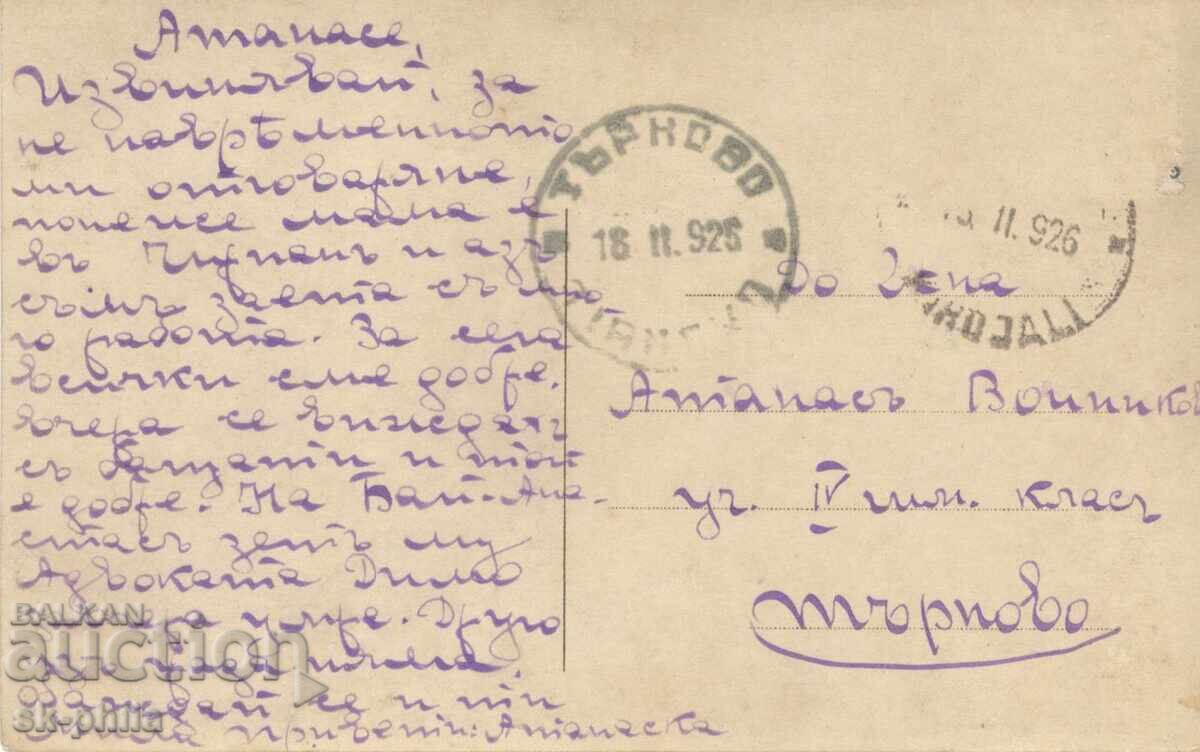 Атанасе,
Извинявай, за
не навърѣменното
ми отговаряне,
понеже мама е
въ Чирпанъ и азъ
съмъ заета съ мно
го работа. За сега
всички сме добре.
Вчера се виждахъ
съ баща ти и той
е добре. На Бай-Ана-
стасъ зетъ му
Адвоката Димо
вчера умре. Друго
нищо няма.
се и ти
Приветъ: Атанаска
ТЪРНОВО
18 II. 926
II. 926
RDJALI
До Г-на
Атанасъ Войников
уч. IV гим. класъ
Търново
BALKAN
auction
sk-philla